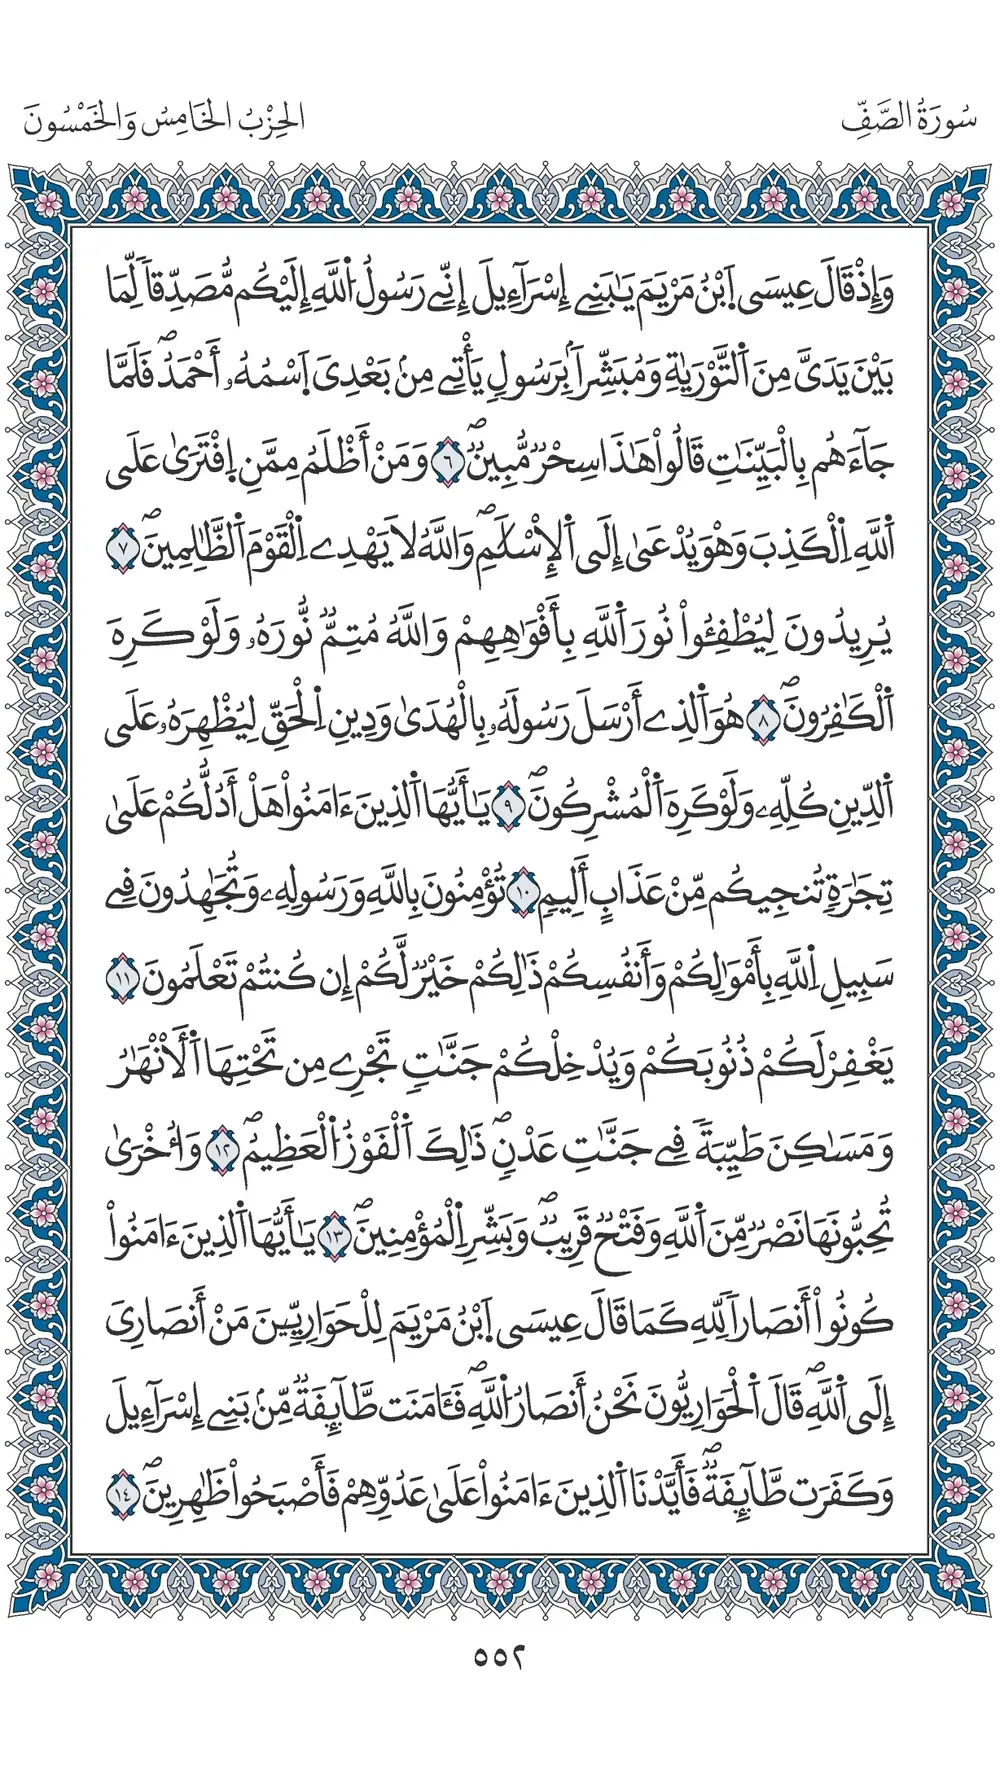 سُورَةُ الصَّفِّ
الحِزْبُ الخَامِسُ وَالخَمْسُونَ
وَإِذْ قَالَ عِيسَى اَبْنُ مَرْيَمَ يَٰبَنِے إِسْرَآءِيلَ إِنِّے رَسُولُ اُللَّهِ إِلَيْكُم مُّصَدِّقاٗ لِّمَا
بَيْنَ يَدَىَّ مِنَ اَلتَّوْرَيٰةِ وَمُبَشِّراَۢ بِرَسُولٖ يَأْتِے مِنۢ بَعْدِىَ اَسْمُهُۥٓ أَحْمَدُۖ فَلَمَّا
جَآءَهُم بِالْبَيِّنَٰتِ قَالُواْ هَٰذَا سِحْرٞ مُّبِينٞۖ ٦ وَمَنْ أَظْلَمُ مِمَّنِ اِفْتَرَىٰ عَلَى
اَللَّهِ اِلْكَذِبَ وَهْوَ يُدْعَىٰٓ إِلَى اَلِاسْلَٰمِۖ وَاللَّهُ لَا يَهْدِے اِلْقَوْمَ اَلظَّٰلِمِينَۖ ٧
يُرِيدُونَ لِيُطْفِـُٔواْ نُورَ اَللَّهِ بِأَفْوَٰهِهِمْ وَاللَّهُ مُتِمّٞ نُّورَهُۥ وَلَوْ كَرِهَ
اَلْكَٰفِرُونَۖ ٨ هُوَ اَلذِےٓ أَرْسَلَ رَسُولَهُۥ بِالْهُدَىٰ وَدِينِ اِلْحَقِّ لِيُظْهِرَهُۥ عَلَى
اَلدِّينِ كُلِّهِۦ وَلَوْ كَرِهَ اَلْمُشْرِكُونَۖ ٩ يَٰٓأَيُّهَا اَلذِينَ ءَامَنُواْ هَلْ أَدُلُّكُمْ عَلَىٰ
تِجَٰرَةٖ تُنجِيكُم مِّنْ عَذَابٍ أَلِيمٖ ١٠ تُؤْمِنُونَ بِاللَّهِ وَرَسُولِهِۦ وَتُجَٰهِدُونَ فِے
سَبِيلِ اِللَّهِ بِأَمْوَٰلِكُمْ وَأَنفُسِكُمْ ذَٰلِكُمْ خَيْرٞ لَّكُمْ إِن كُنتُمْ تَعْلَمُونَ ١١
يَغْفِرْ لَكُمْ ذُنُوبَكُمْ وَيُدْخِلْكُمْ جَنَّٰتٖ تَجْرِے مِن تَحْتِهَا اَلْأَنْهَٰرُ
وَمَسَٰكِنَ طَيِّبَةٗ فِے جَنَّٰتِ عَدْنٖۖ ذَٰلِكَ اَلْفَوْزُ اُلْعَظِيمُۖ ١٢ وَأُخْرَىٰ
تُحِبُّونَهَا نَصْرٞ مِّنَ اَللَّهِ وَفَتْحٞ قَرِيبٞۖ وَبَشِّرِ اِلْمُؤْمِنِينَۖ ١٣ يَٰٓأَيُّهَا اَلذِينَ ءَامَنُواْ
كُونُواْ أَنصَاراٗ لِّلهِ كَمَا قَالَ عِيسَى اَبْنُ مَرْيَمَ لِلْحَوَارِيِّـۧنَ مَنْ أَنصَارِىَ
إِلَى اَللَّهِۖ قَالَ اَلْحَوَارِيُّونَ نَحْنُ أَنصَارُ اُللَّهِۖ فَـَٔامَنَت طَّآئِفَةٞ مِّنۢ بَنِے إِسْرَآءِيلَ
وَكَفَرَت طَّآئِفَةٞۖ فَأَيَّدْنَا اَلذِينَ ءَامَنُواْ عَلَىٰ عَدُوِّهِمْ فَأَصْبَحُواْ ظَٰهِرِينَۖ ١٤
٥٥٢